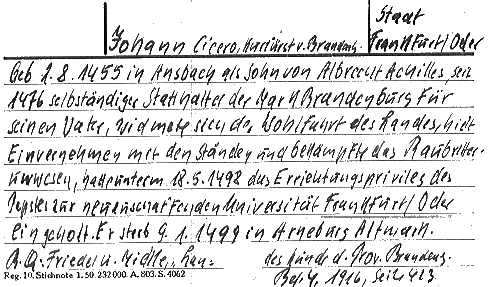 Staat
Johann Cicero, Kurfürst v. Brandenbg. Frankfurt/Oder
Geb 1.8.1455 in Ansbach als Sohn von Albrecht Achilles, seit
1476 selbständiger Statthalter der Mark Brandenburg für
seinen Vater, widmete sich der Wohlfahrt des Landes, hielt
Einvernehmen mit den Ständen und bekämpfte das Raubritter-
unwesen, hatte unterm 18.5.1498 das Errichtungsprivileg des
Papstes zur neu anschaffenden Universität Frankfurt/Oder
eingeholt. Er starb 9.1.1499 in Arneburg Altmark.
des Prov. Brandenbg.
Reg. 10. Stichnote 1. 50. 232 000. A. 803. S. 4062
Bd. 4, 1916, Seite 423